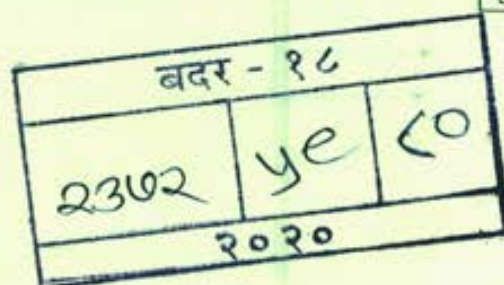 बदर - १८
२३७२ ५९ ८०
२०२०